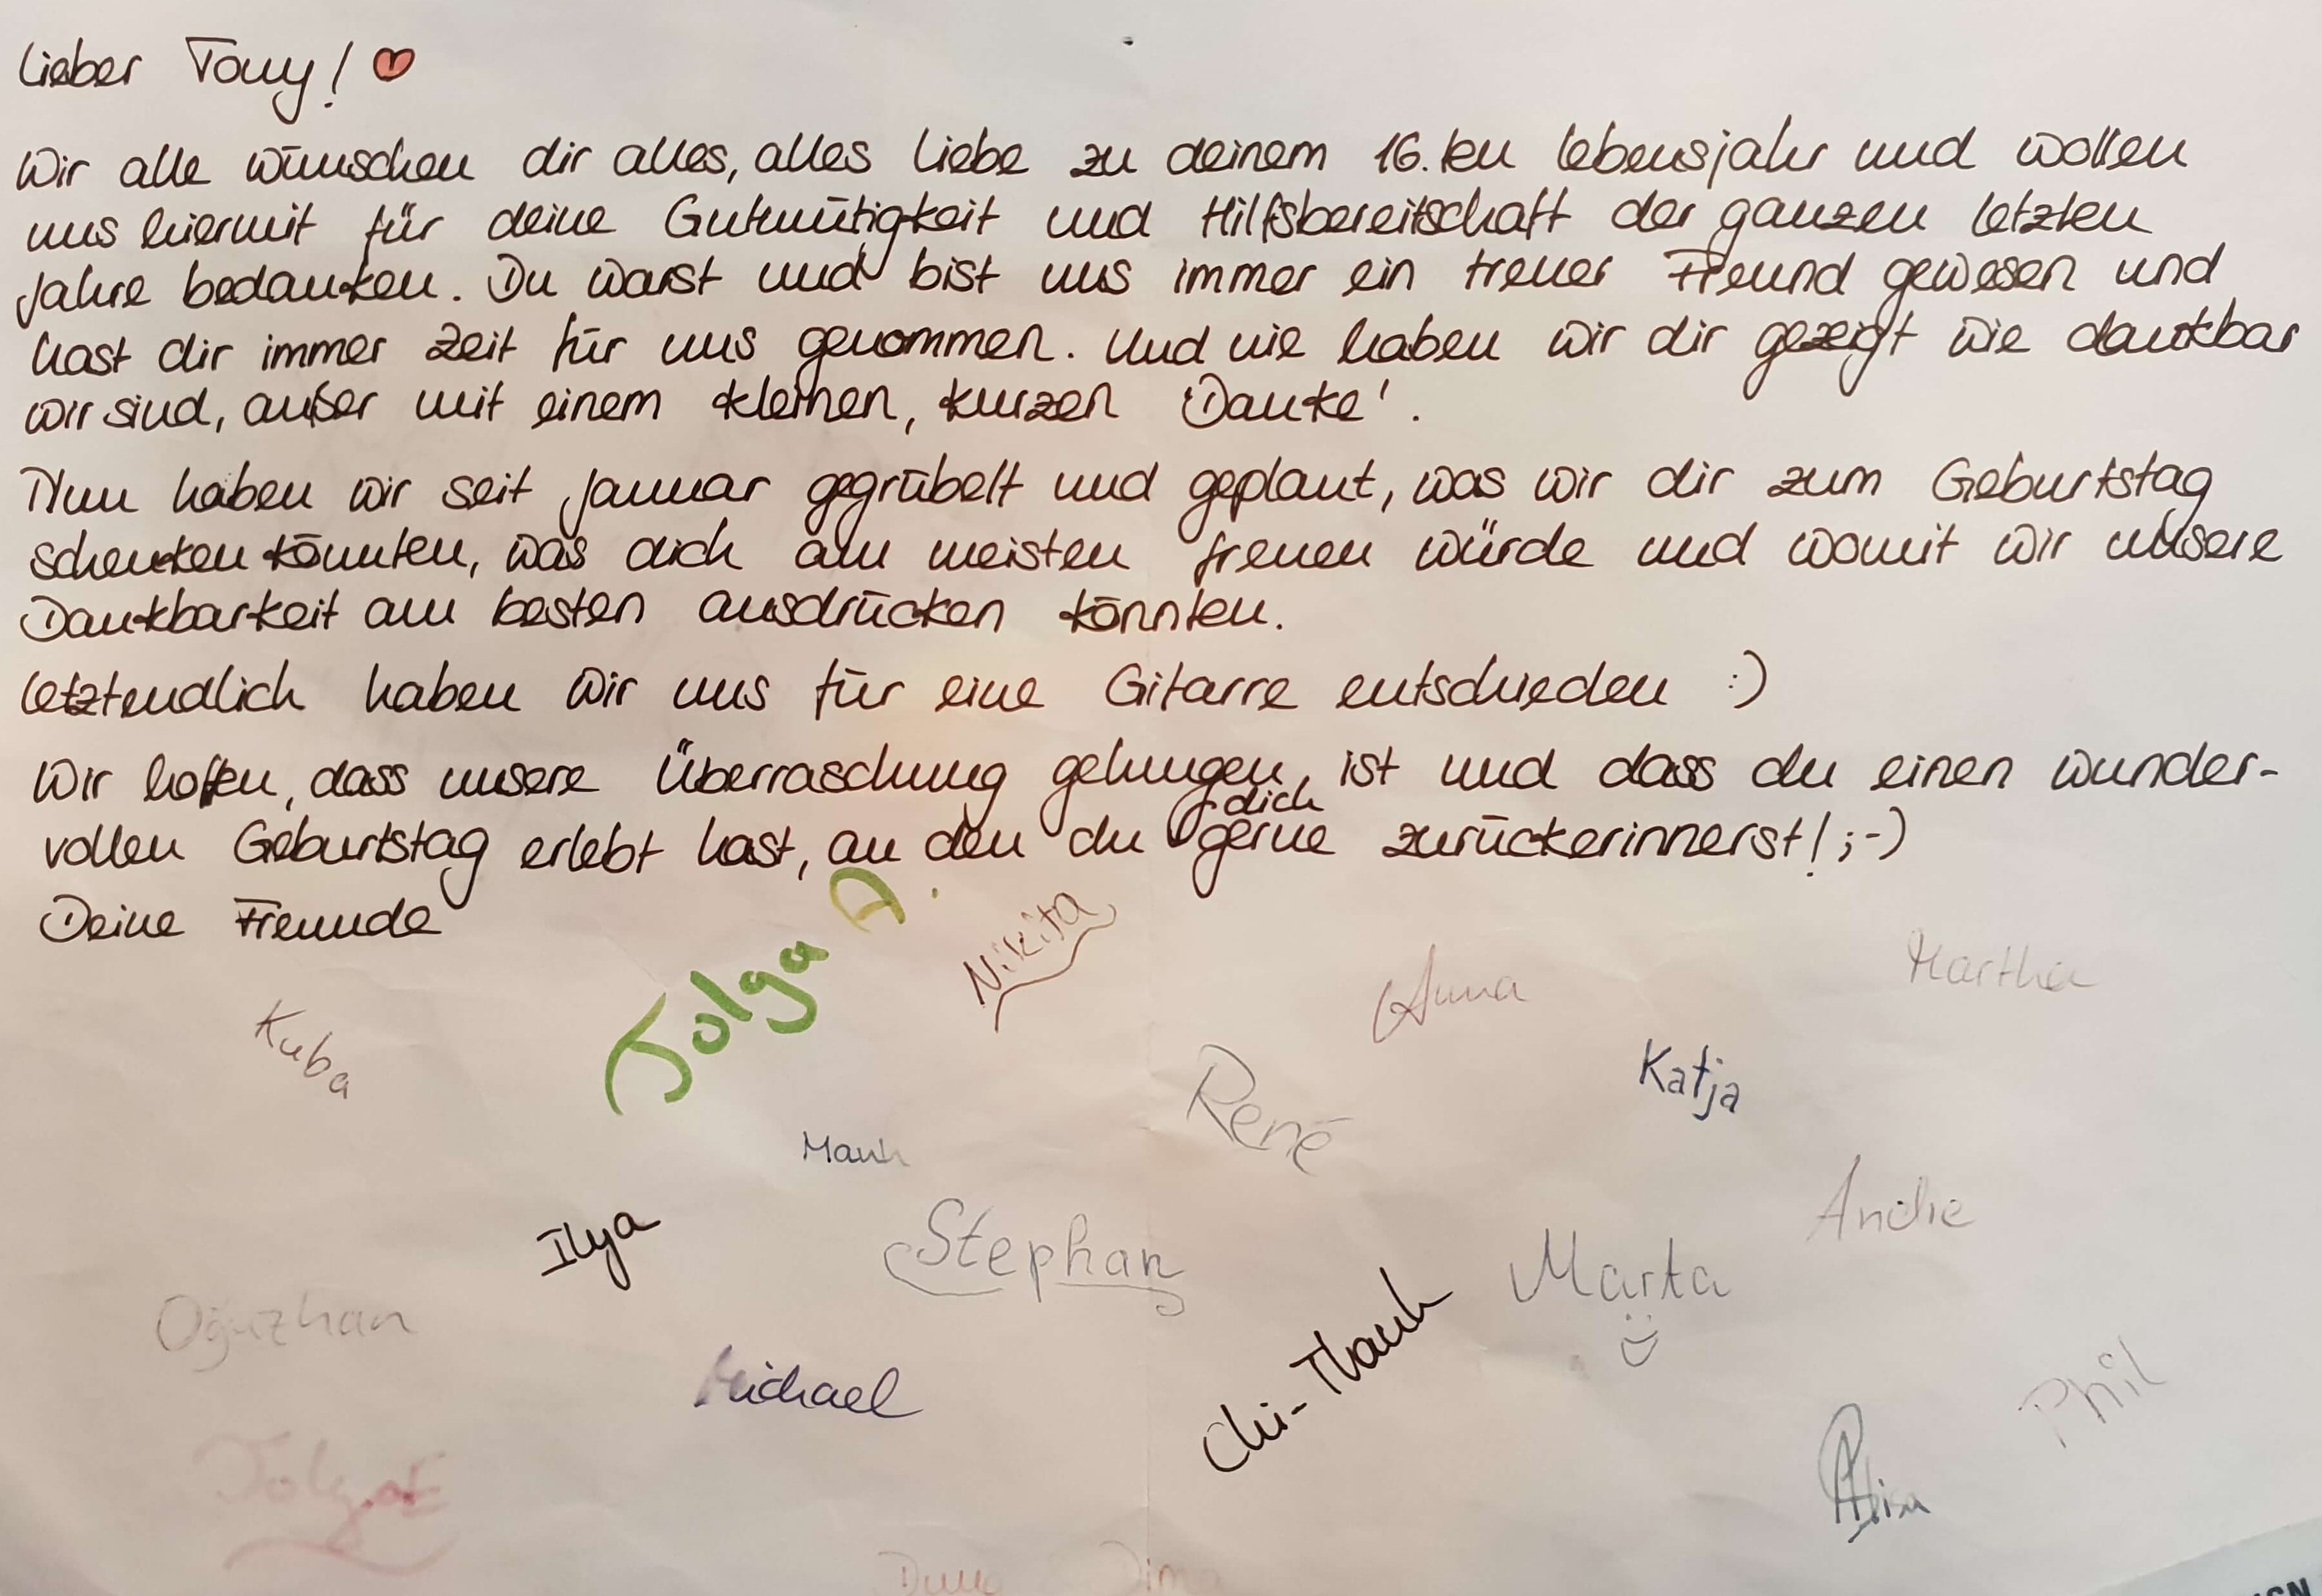 Lieber Tony! ♡
Wir alle wünschen dir alles, alles Liebe zu deinem 16.ten Lebensjahr und wollen
uns hiermit für deine Gutmütigkeit und Hilfsbereitschaft der ganzen letzten
Jahre bedanken. Du warst und bist uns immer ein treuer Freund gewesen und
hast dir immer Zeit für uns genommen. Und nie haben wir dir gezeigt wie dankbar
wir sind, außer mit einem kleinen, kurzen 'Danke'.
Nun haben wir seit Januar gegrübelt und geplant, was wir dir zum Geburtstag
schenken könnten, was dich am meisten freuen würde und womit wir unsere
Dankbarkeit am besten ausdrücken könnten.
Letztendlich haben wir uns für eine Gitarre entschieden :)
Wir hoffen, dass unsere Überraschung gelungen ist und dass du einen wunder-
vollen Geburtstag erlebt hast, an den du dich gerne zurückerinnerst! ;-)
Deine Freunde
Tolga A.
Nikita
Anna
Martha
Kuba
René
Katja
Manh
Ilya
Stephan
Marta
Oğuzhan
Michael
Chi-Thanh
Phil
Alisa
Dima